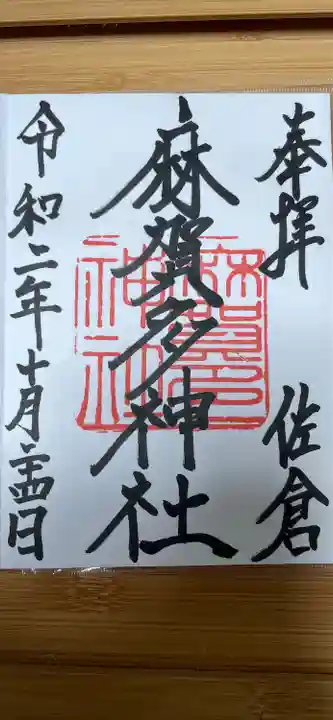 奉拝 佐倉
麻賀多神社
令和二年十月二十四日
麻賀多
神社